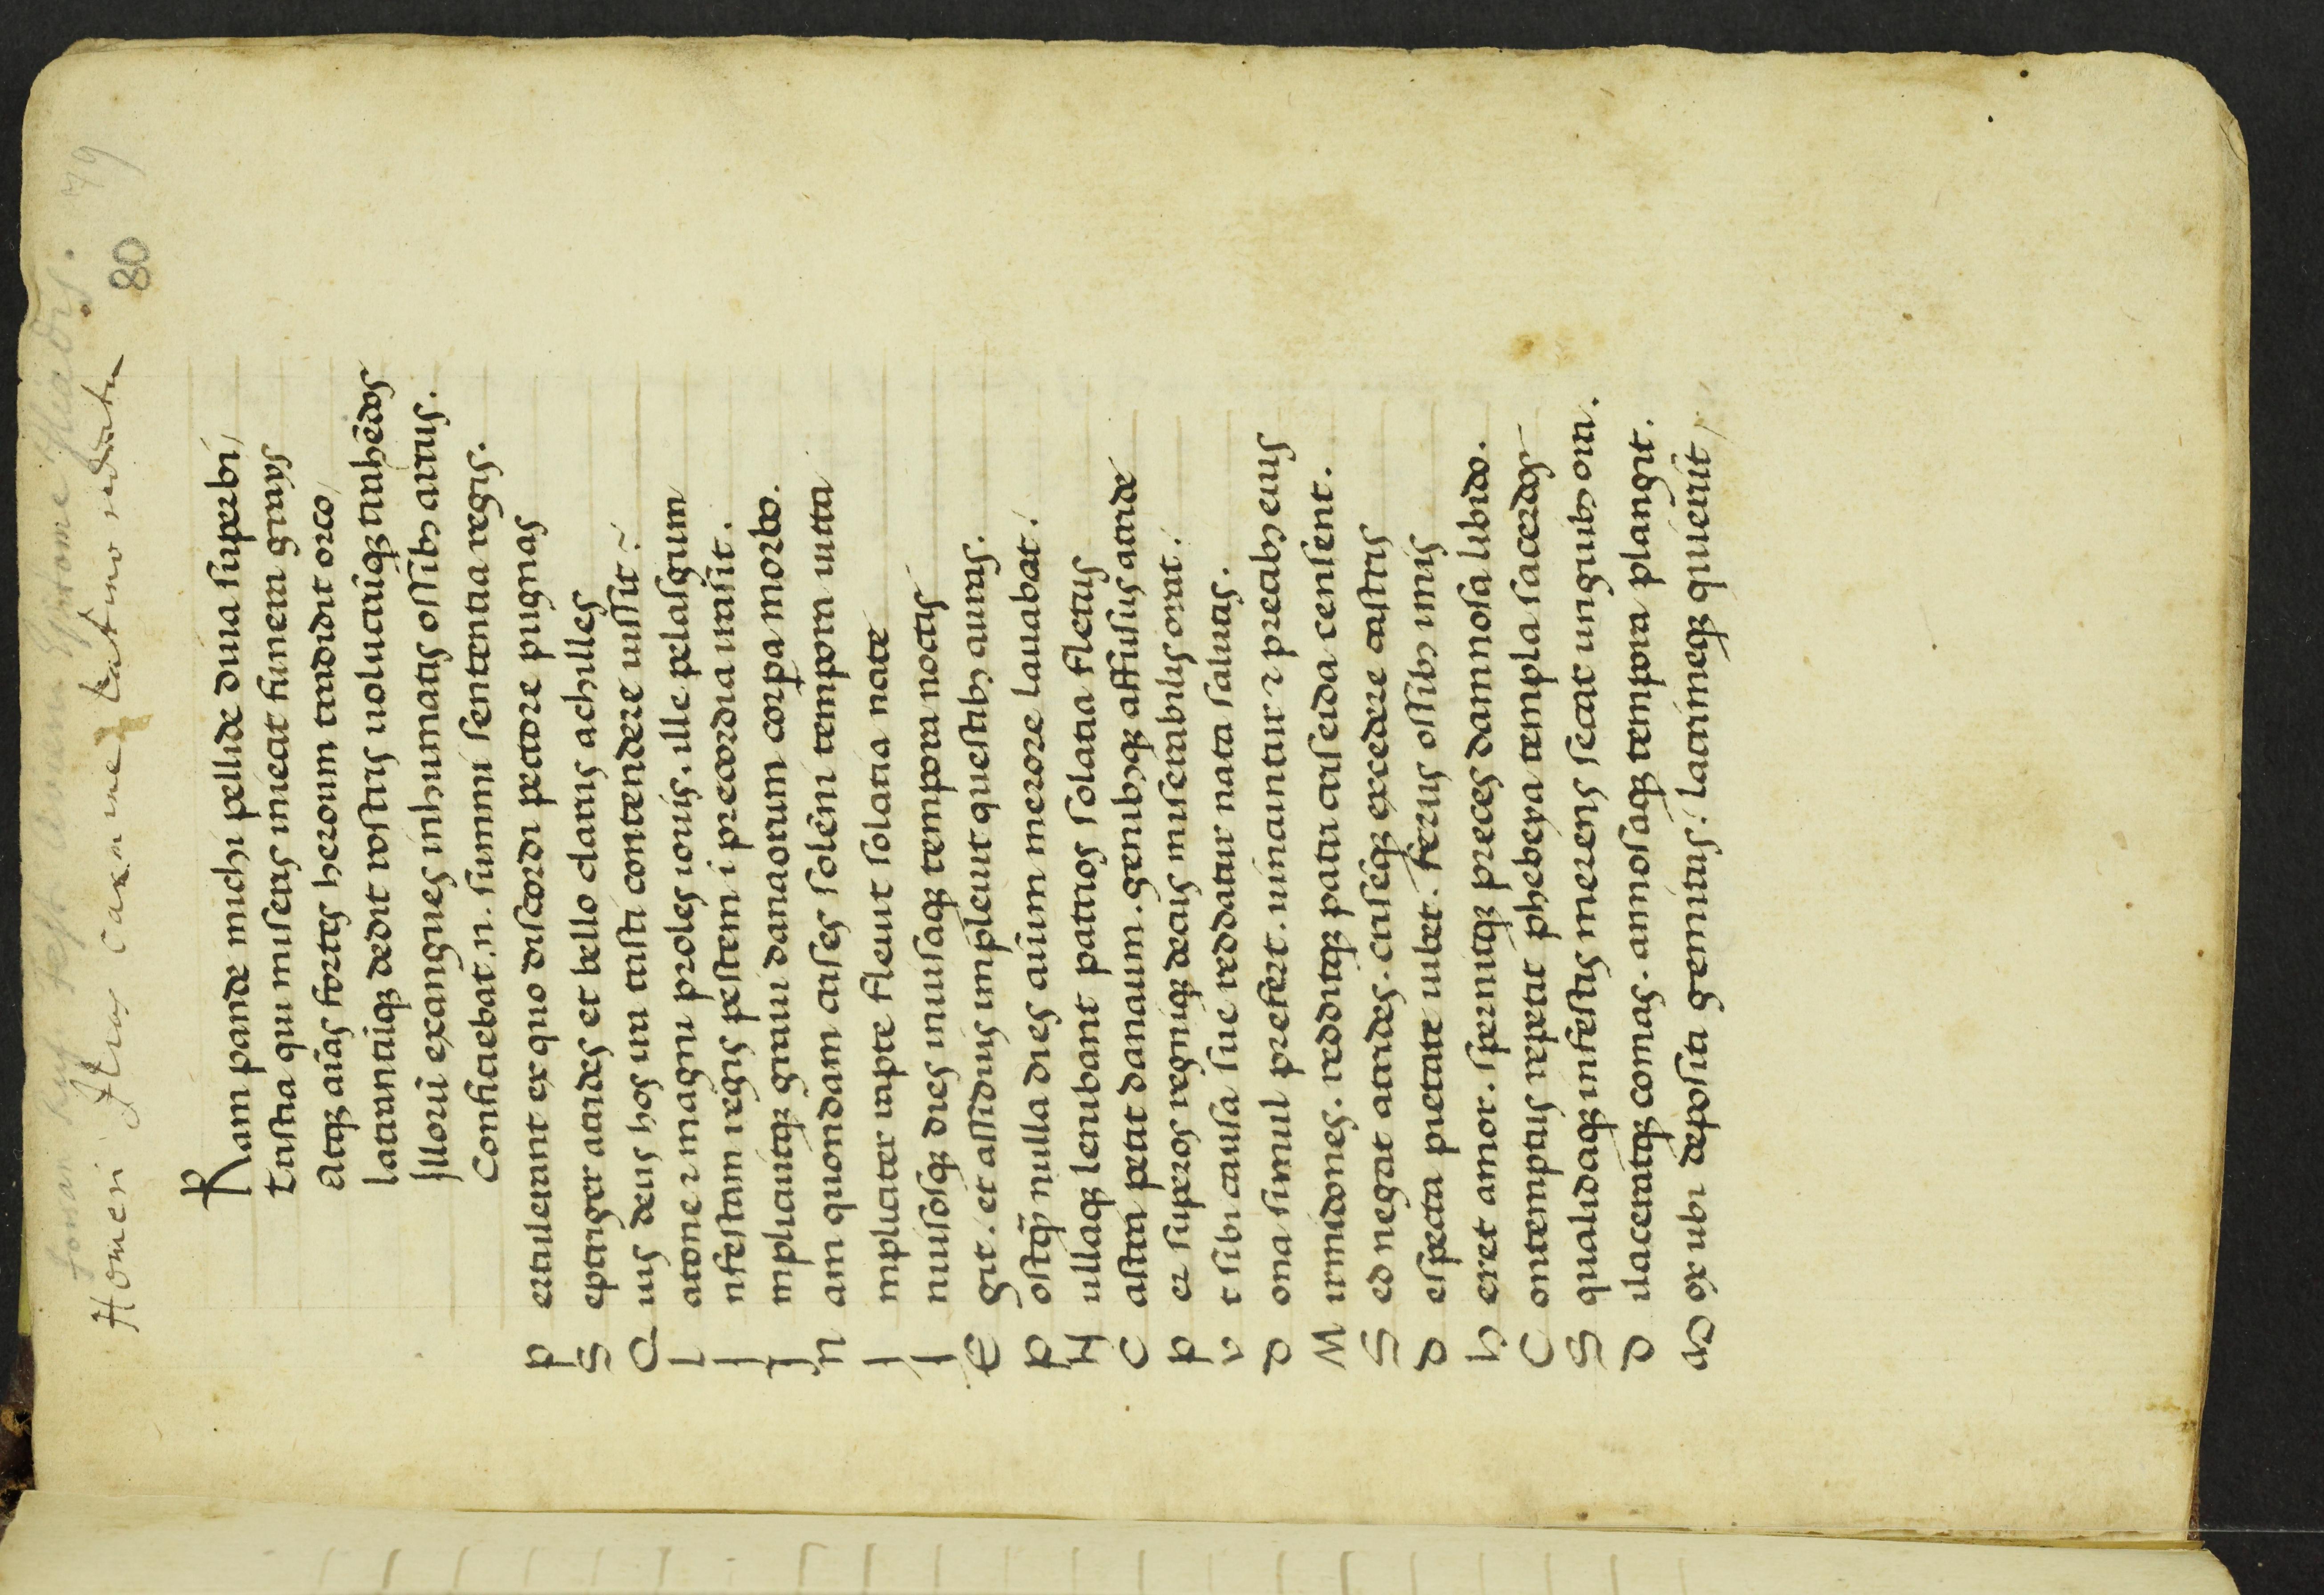 Homeri Ilias carmine Latino reddita
80
79
Ram pande michi pellide diua superbi
Tristia qui miseris iniecat funera grays
Atqꝫ aīas fortes heroum tradidit orco
latrantūqꝫ dedit rostris uolucrūqꝫ trahēdos
Illorū exangues inhumatis ossibꝫ artus.
Conficiebat .n. summi sententia regis.
Pertulerant ex quo discordi pectore pugnas
Sceptriger atrides et bello clarus achilles
Quis deus hos ira tristi contendere iussit?
Latone ⁊ magni proles iouis. ille pelasgum
Infestam regis pestem i precordia misit.
Implicuitqꝫ graui danaorum corꝑa morbo.
Nam quondam crises solēni tempora uitta
Impliciter rapte fleuit solatia nate
Inuisosqꝫ dies inuisaqꝫ tempora noctis
Egit. et assiduis impleuit questibꝫ auras.
Postqꝫ̄ nulla dies aīum merore leuabat.
Nullaqꝫ lenibant patrios solatia fletus
Castra petit danaum. genibꝫqꝫ affusus atride
Per superos regniqꝫ decus miserabilis orat.
Vt sibi causa sue reddatur nata salutis.
Dona simul prefert. uincuntur ⁊ precibꝫ eius
Mirmidones. redditqꝫ patri criseida censent.
Sed negat atrides. crisēqꝫ excedere castris
Despecta pietate iubet. ferus ossibꝫ imis
heret amor. spernitqꝫ preces damnosa libido.
Contemptus repetit phebeya templa sacerdos
Squalidaqꝫ infestis merens secat unguibꝫ ora.
Dilaceratqꝫ comas. annosaqꝫ tempora plangit.
Mox ubi depositi gemitus. lacrimeqꝫ quierūt